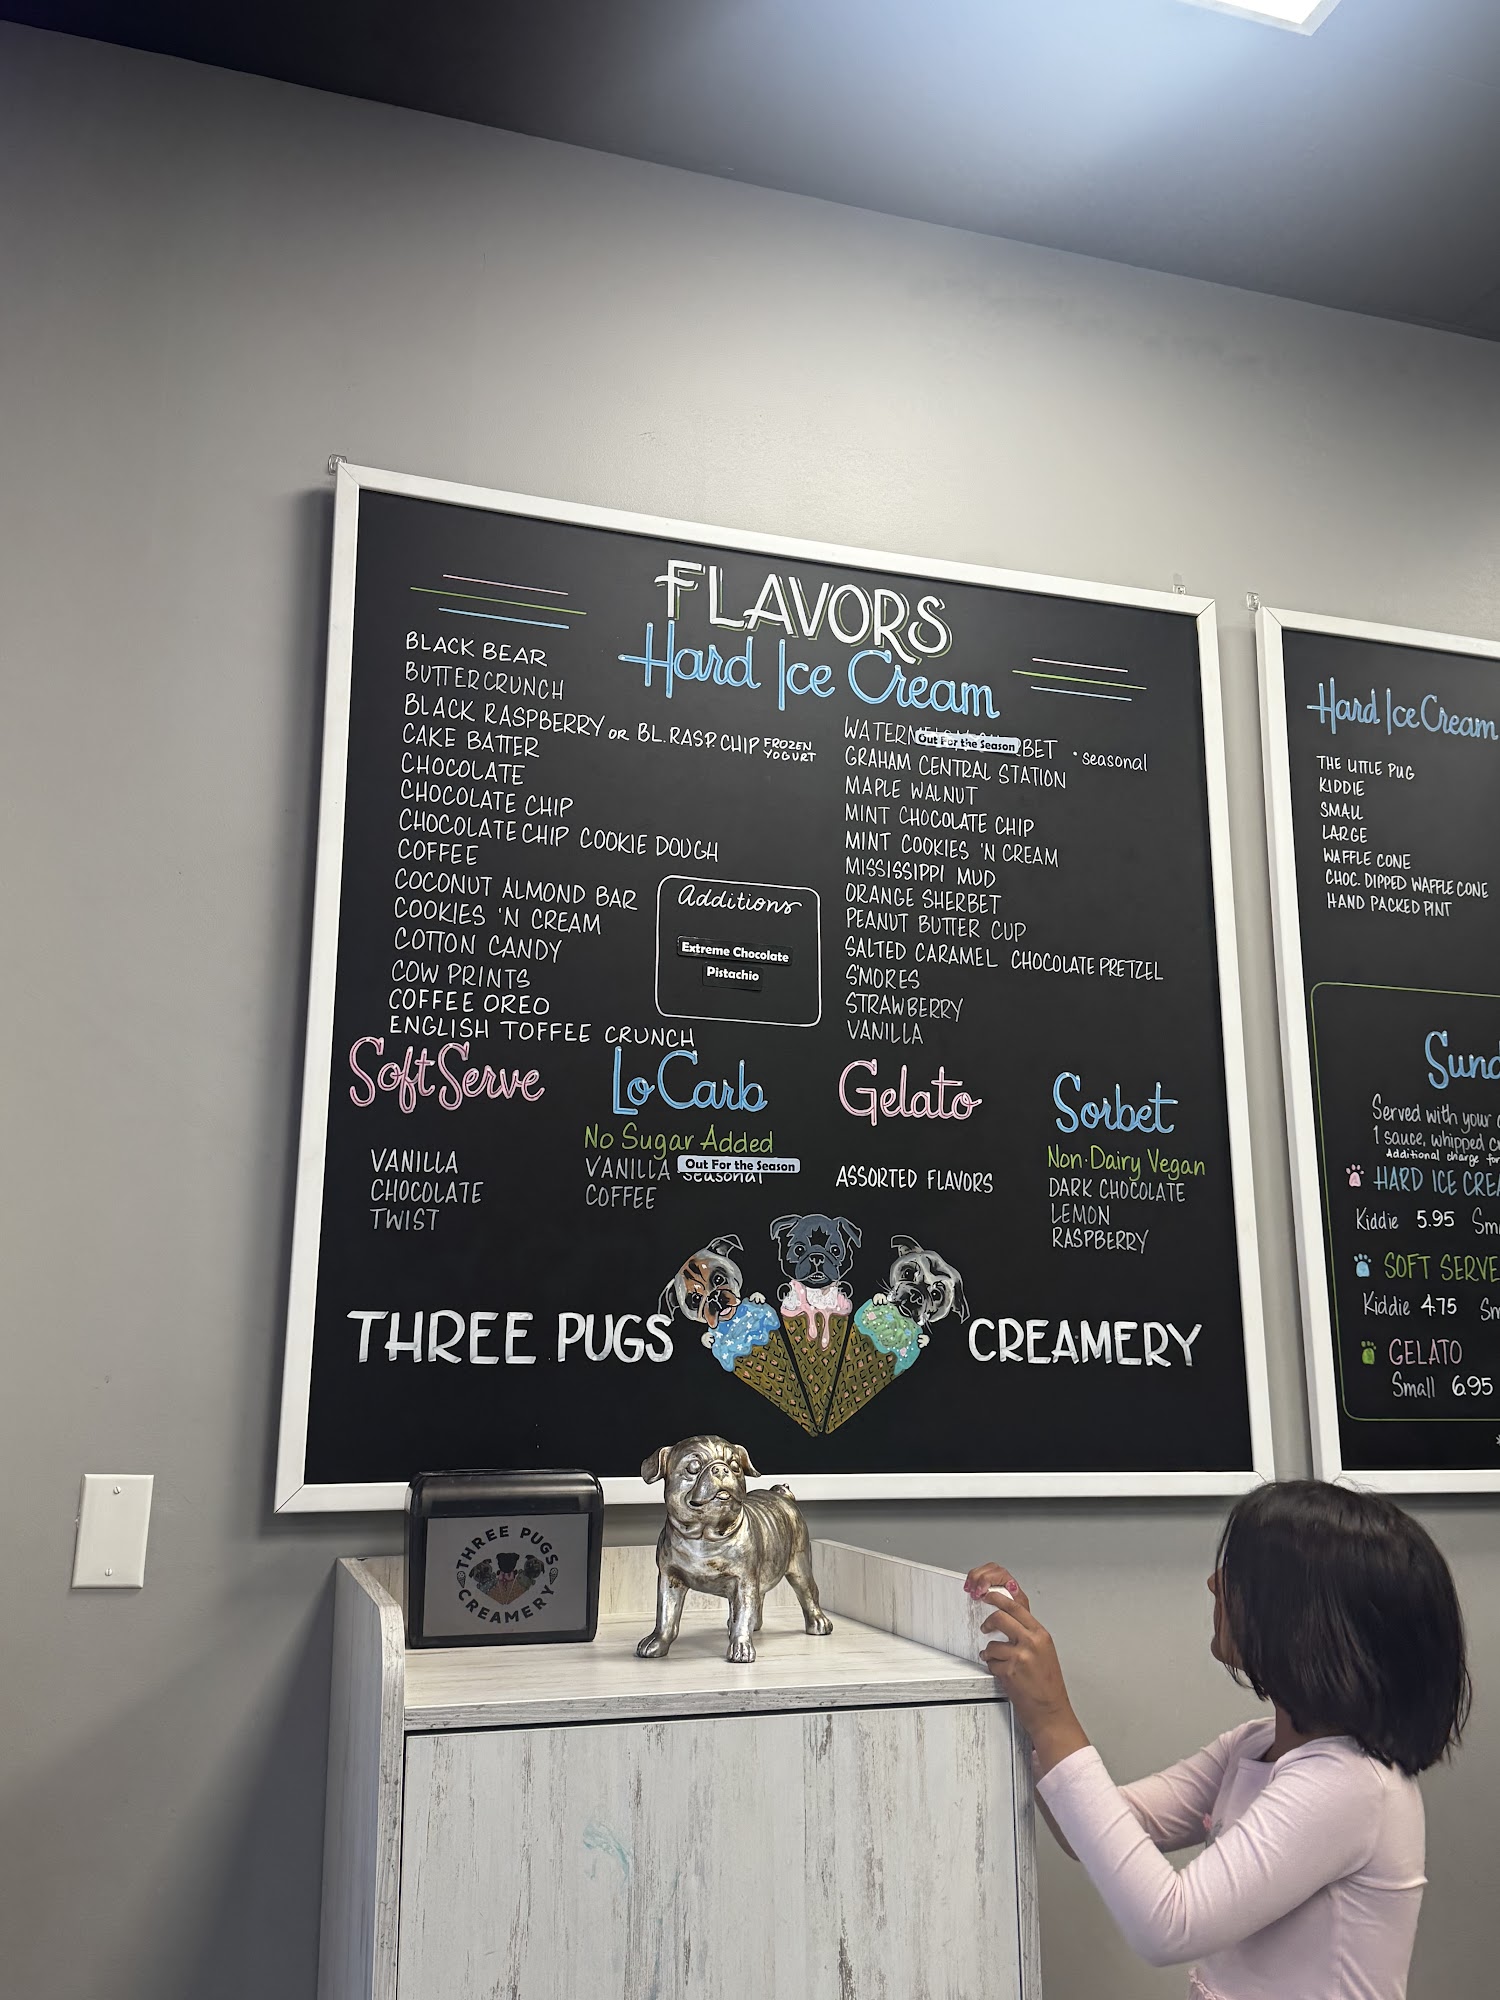 FLAVORS
Hard Ice Cream
BLACK BEAR
BUTTERCRUNCH
BLACK RASPBERRY or BL. RASP. CHIP FROZEN YOGURT
CAKE BATTER
CHOCOLATE
CHOCOLATE CHIP
CHOCOLATE CHIP COOKIE DOUGH
COFFEE
COCONUT ALMOND BAR
COOKIES 'N CREAM
COTTON CANDY
COW PRINTS
COFFEE OREO
ENGLISH TOFFEE CRUNCH
Additions
Extreme Chocolate
Pistachio
Out For the Season • seasonal
GRAHAM CENTRAL STATION
MAPLE WALNUT
MINT CHOCOLATE CHIP
MINT COOKIES 'N CREAM
MISSISSIPPI MUD
ORANGE SHERBET
PEANUT BUTTER CUP
SALTED CARAMEL CHOCOLATE PRETZEL
S'MORES
STRAWBERRY
VANILLA
Soft Serve
VANILLA
CHOCOLATE
TWIST
Lo Carb
No Sugar Added
VANILLA Out For the Season seasonal
COFFEE
Gelato
ASSORTED FLAVORS
Sorbet
Non-Dairy Vegan
DARK CHOCOLATE
LEMON
RASPBERRY
THREE PUGS CREAMERY
Hard Ice Cream
THE LITTLE PUG
KIDDIE
SMALL
LARGE
WAFFLE CONE
CHOC. DIPPED WAFFLE CONE
HAND PACKED PINT
Served with your
1 sauce, whipped
Additional charge for
HARD ICE
Kiddie 5.95
SOFT SERVE
Kiddie 4.75
GELATO
Small 6.95
THREE PUGS
CREAMERY